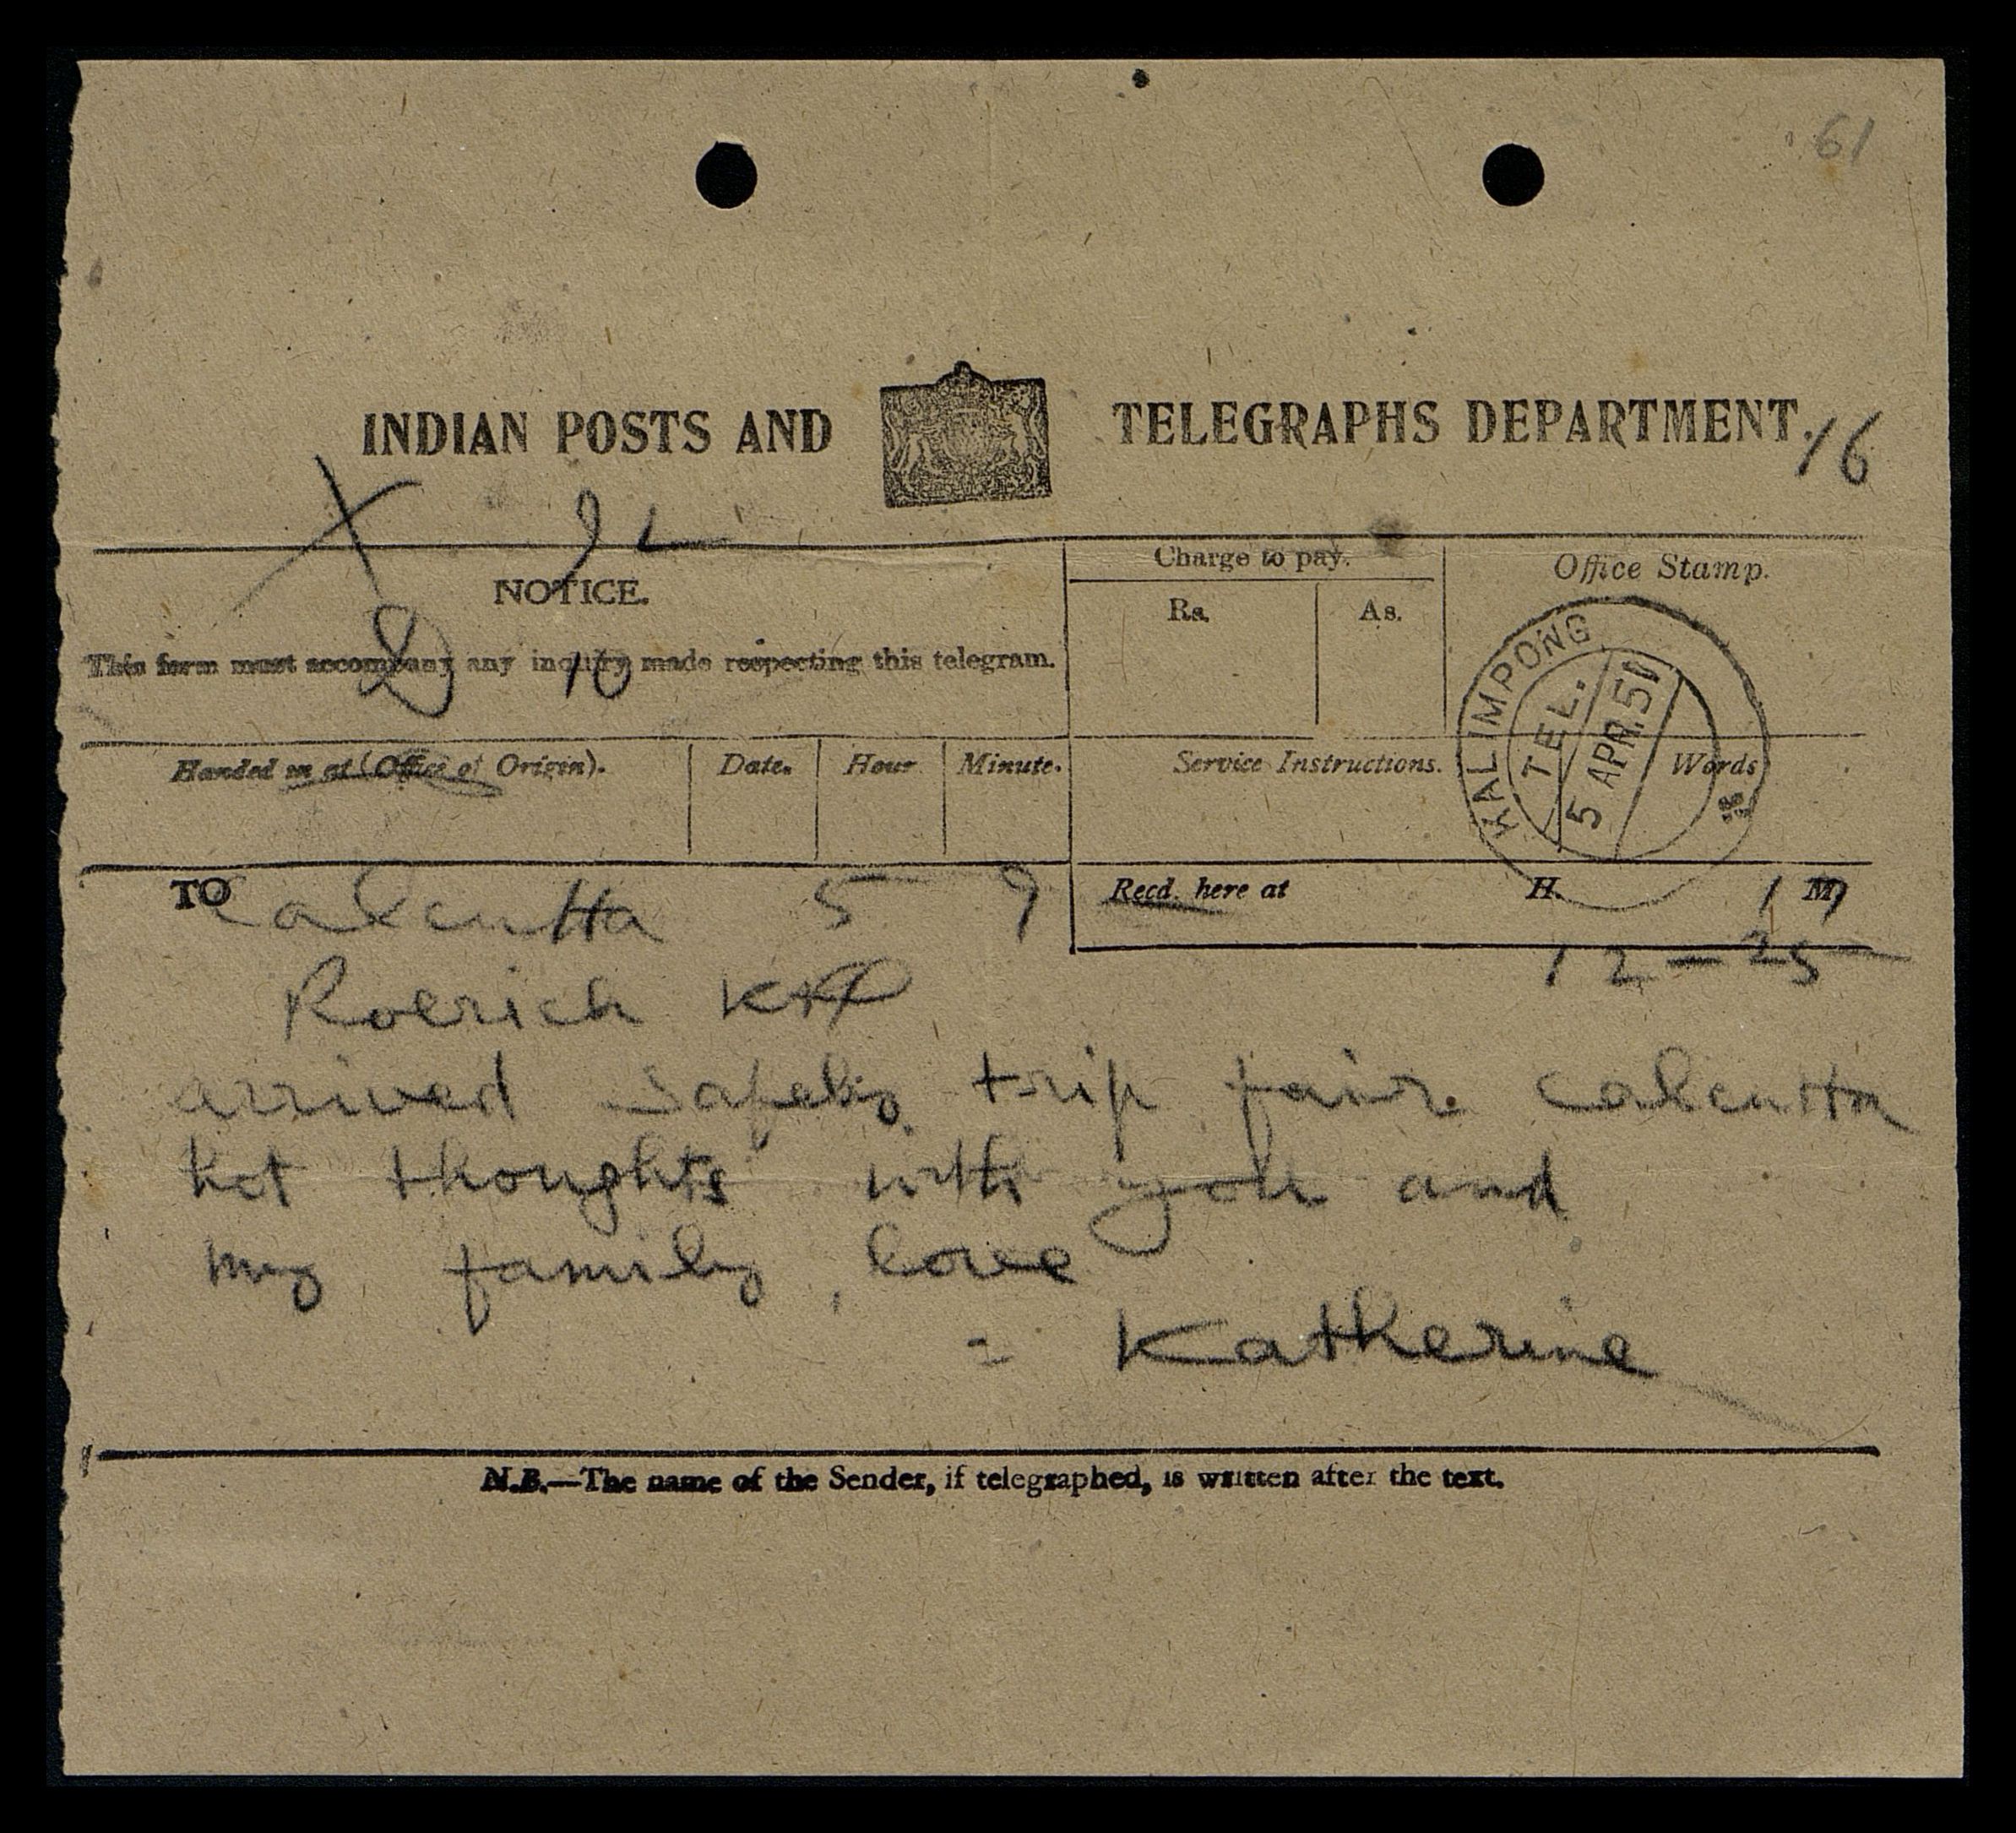 61
INDIAN POSTS AND TELEGRAPHS DEPARTMENT.
16
X
NOTICE.
This form must accompany any inquiry made respecting this telegram.
10
Charge to pay.
Rs. As.
Office Stamp.
KALIMPONG
TEL.
5 APR. 51
Handed in at (Office of Origin). Date. Hour Minute. Service Instructions. Words
TO
Calcutta 5 9
Recd. here at H. M.
17
12-25
Roerich
arrived safely trip fair calcutta
hot thoughts with you and
my family love
= Katherine
N.B.—The name of the Sender, if telegraphed, is written after the text.